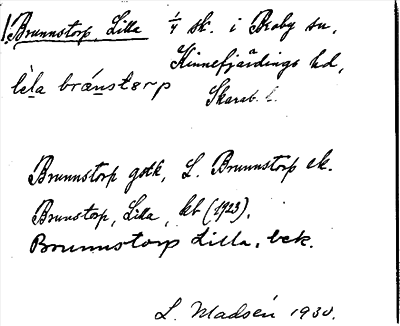 Brunnstorp, Lilla 1/4 sk. i Broby sn,
Kinnefjärdings hd,
lela brǽnsterp Skarab. l.
Brunnstorp gdk, L. Brunnstorp ek.
Brunstorp, Lilla, kb (1923).
Brunnstorp Lilla, bek.
L. Madsén 1930.